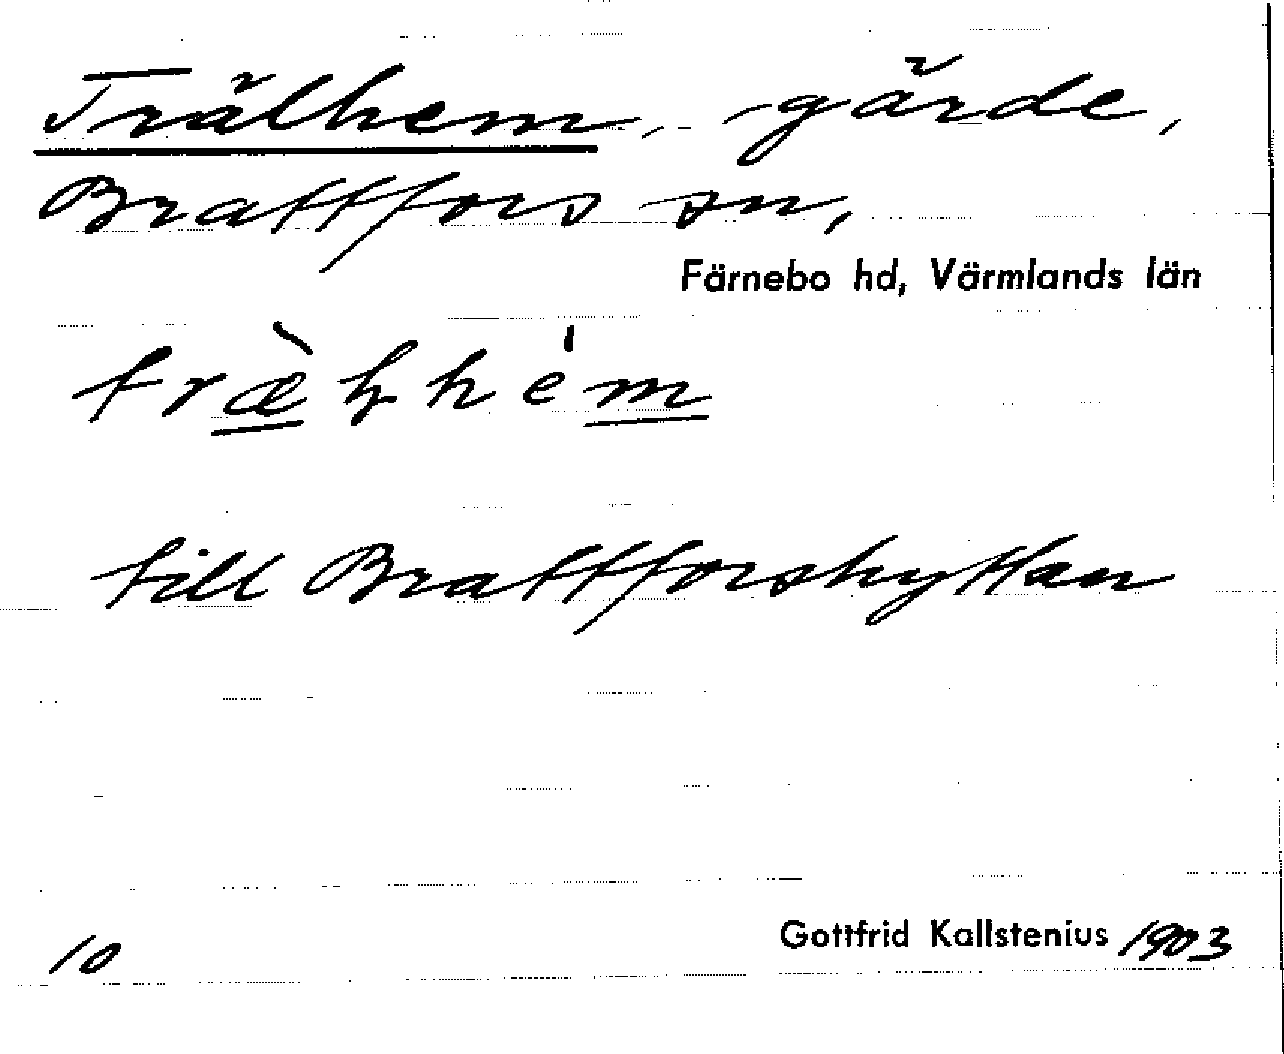 Trälhem, -gärde,
Brattfors sn,
Färnebo hd, Värmlands län
till Brattforshyttan
10
Gottfrid Kallstenius 1903